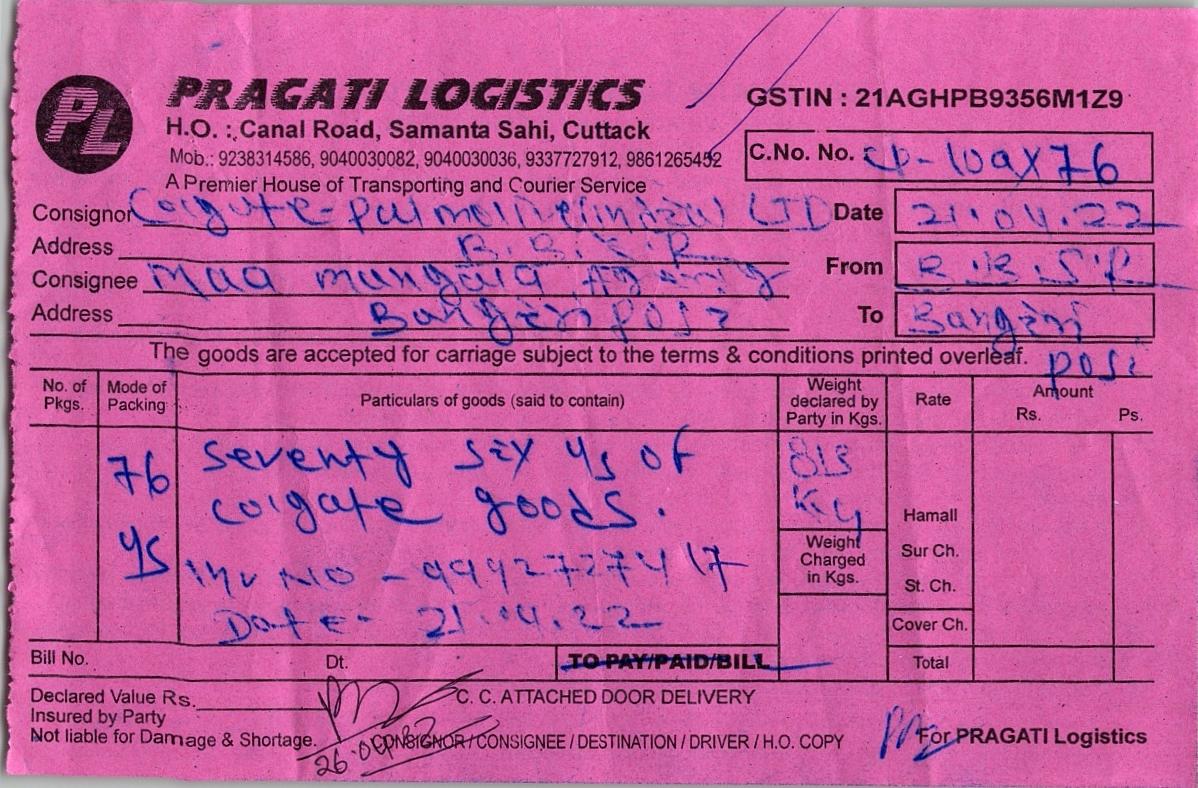 PL
PRAGATI LOGISTICS
GSTIN : 21AGHPB9356M1Z9
H.O. : Canal Road, Samanta Sahi, Cuttack
Mob.: 9238314586, 9040030082, 9040030036, 9337727912, 9861265452
C.No. No.
A Premier House of Transporting and Courier Service
Consignor Colgate-palmolive LTD
Date 21.04.22
Address B.B.S.R
Consignee Maa mangala
From B.B.S.R
Address Bangiriposi
To Bangiri posi
The goods are accepted for carriage subject to the terms & conditions printed overleaf.
No. of Pkgs. Mode of Packing Particulars of goods (said to contain) Weight declared by Party in Kgs. Rate Amount Rs. Ps.
76 seventy six of 813
colgate goods. Kg
Hamall
Weight Charged in Kgs.
Sur Ch.
Inv NO - 9992727417
St. Ch.
Date - 21.04.22
Cover Ch.
Bill No. Dt. TO PAY/PAID/BILL Total
Declared Value Rs. C. C. ATTACHED DOOR DELIVERY
Insured by Party
Not liable for Damage & Shortage. CONSIGNOR / CONSIGNEE / DESTINATION / DRIVER / H.O. COPY For PRAGATI Logistics
26